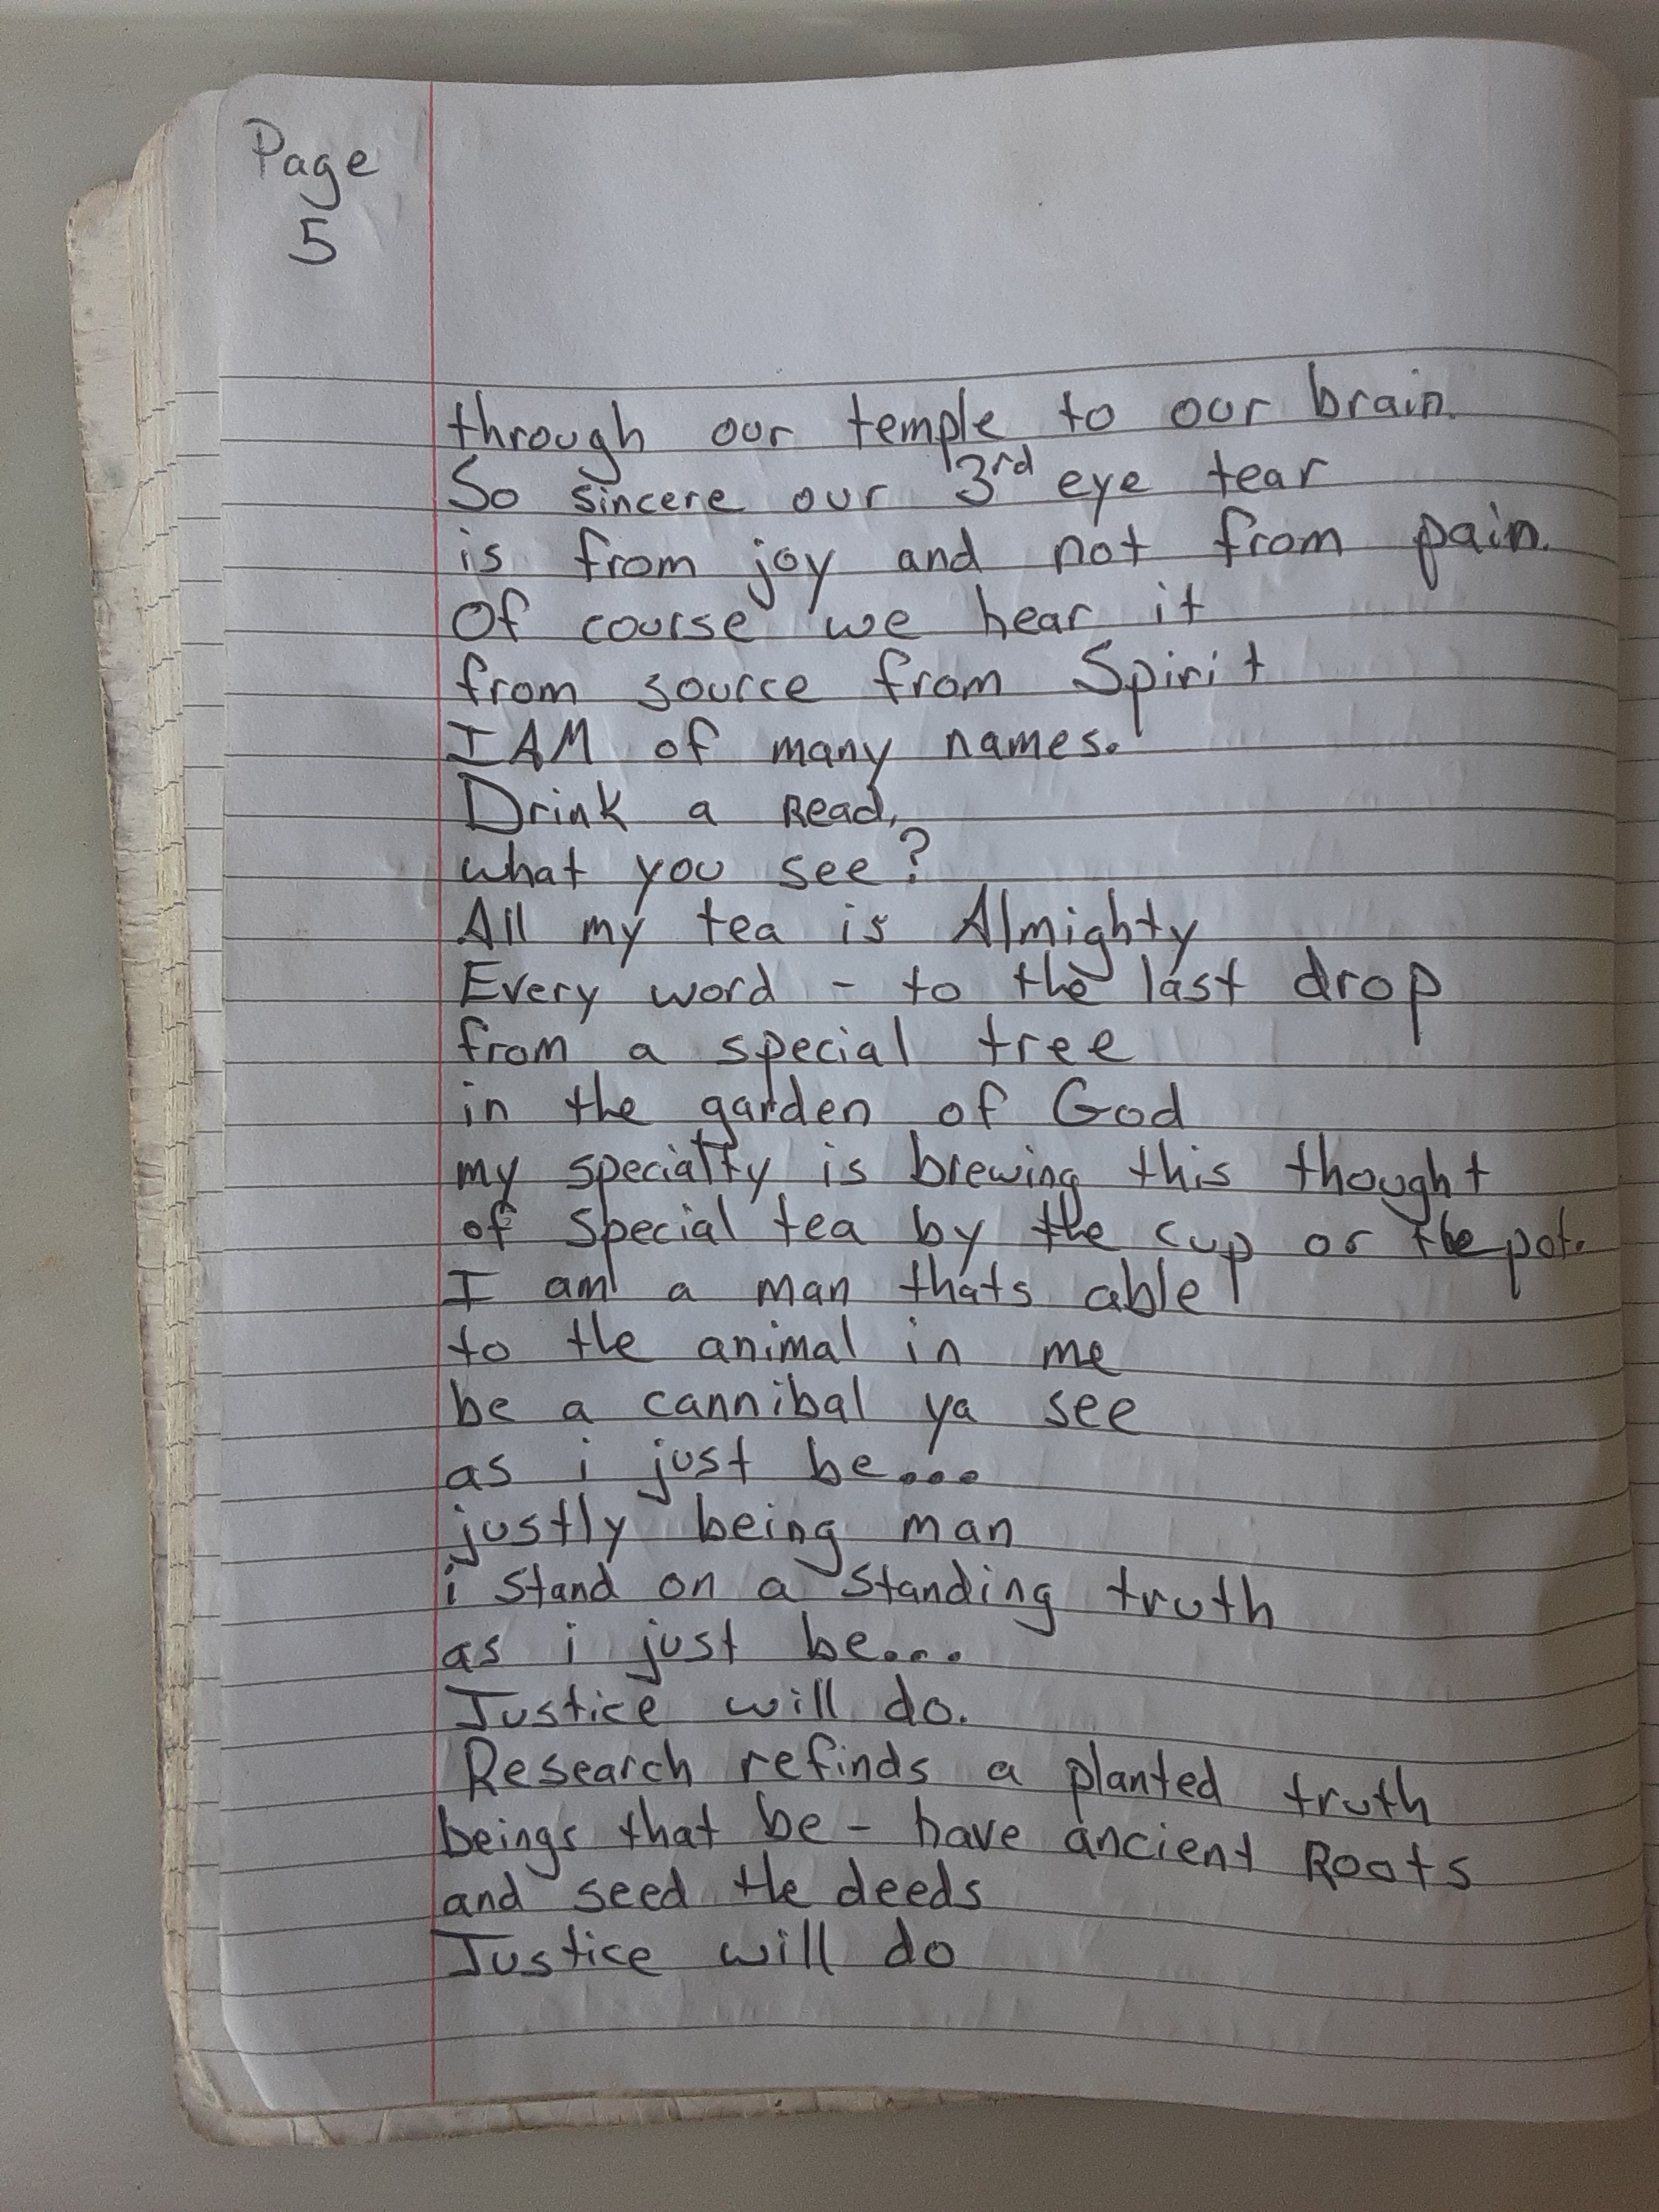 Page
5
through our temple to our brain.
So sincere our 3rd eye tear
is from joy and not from pain.
Of course we hear it
from source from Spirit
I AM of many names.
Drink a Read,
what you see?
All my tea is Almighty
Every word - to the last drop
from a special tree
in the garden of God
my specialty is brewing this thought
of special tea by the cup or the pot.
I am a man thats able
to the animal in me
be a cannibal ya see
as i just be...
justly being man
i stand on a standing truth
as i just be...
Justice will do.
Research refinds a planted truth
beings that be - have ancient Roots
and seed the deeds
Justice will do